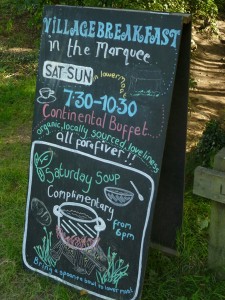 VILLAGE BREAKFAST
in the Marquee
SAT-SUN
in lower moat
7-30-10.30
Continental Buffet
organic, locally sourced, loveliness
all for a fiver!!
Saturday Soup
Complimentary
from
6pm
Bring a spoon and bowl to lower moat